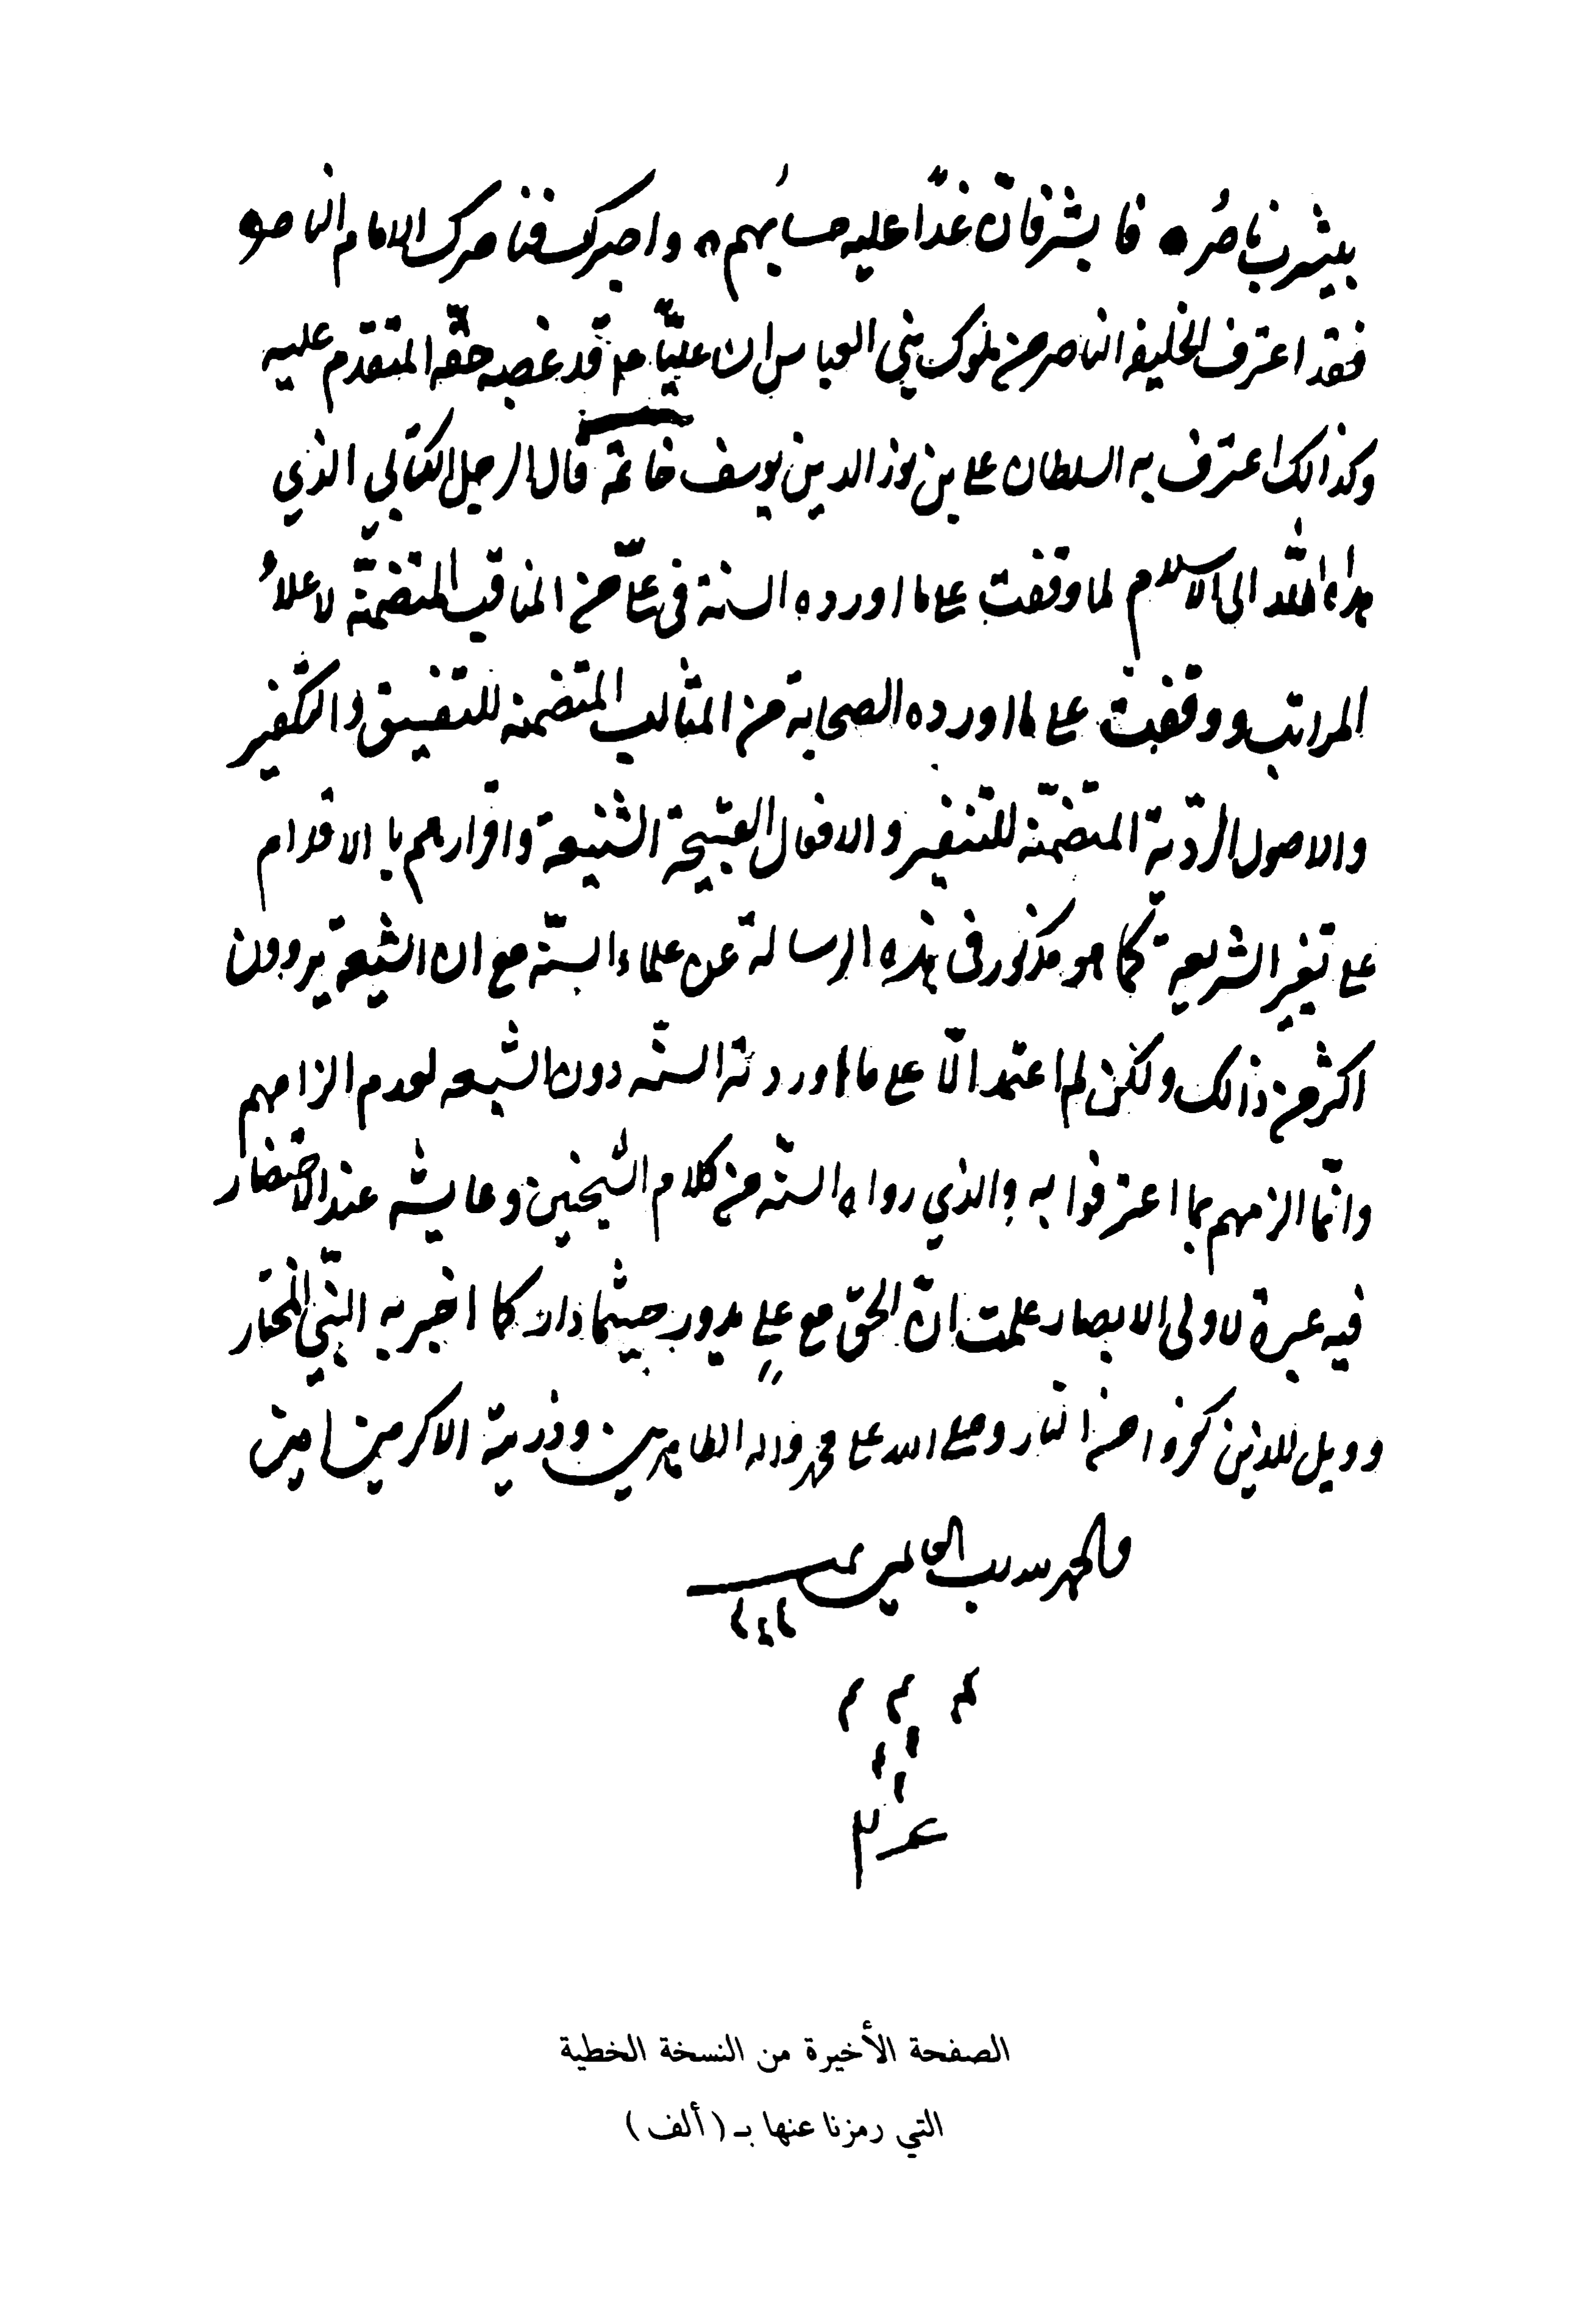 بيثرب ناصُر • فابشر فانّ غدًا عليه حسابُهم ؞ واصبر كفناصرك الامام الناصر
فقد اعترف الخليفة الناصر من ملوك بني العباس ان عليّا عم قد غصبه حقّه المتقدم عليه
وكذالك اعترف به السلطان علي بن نور الدين يوسف خاتمة قال الرجل الكتابي الذي
هداه اللّٰه الى الاسلام لما وقفت على ما اورده السنة في عليّ من المناقب المتضمّنة لاعلاُ
المراتب ووقفت على ما اورده الصحابة من المثالب المتضمنة للتفسيق والتكفير
والاصول الرّدية المتضمّنه للتنفير والافعال القبيحة الشنيعة واقرارهم با الاقدام
على تغير الشريعة كما هو مذكور في هذه الرسالة عن علماء السنّة مع ان الشيعة يروون
اكثر من ذالك ولكن لم اعتمد الّا على ما اوردته السنّه دون الشيعه لعدم الزامهم
وانّما الزمهم بما اعترفوا به والذي رواه السنّة من كلام الشيخين وعايشه عند الاحتضار
فيه عبرة لاولى الابصار علمت انّ الحقّ مع عليٍ يدور حيثما دار كما اخبر به النبيّ المختار
وويل للذين كفروا من النار وصلى الله على محمد واله الطاهرين وذرية الاكرمين امين
والحمد لله رب العالمين تمت
م م م
الصفحة الأخيرة من النسخة الخطية
التي رمزنا عنها بـ ( ألف )